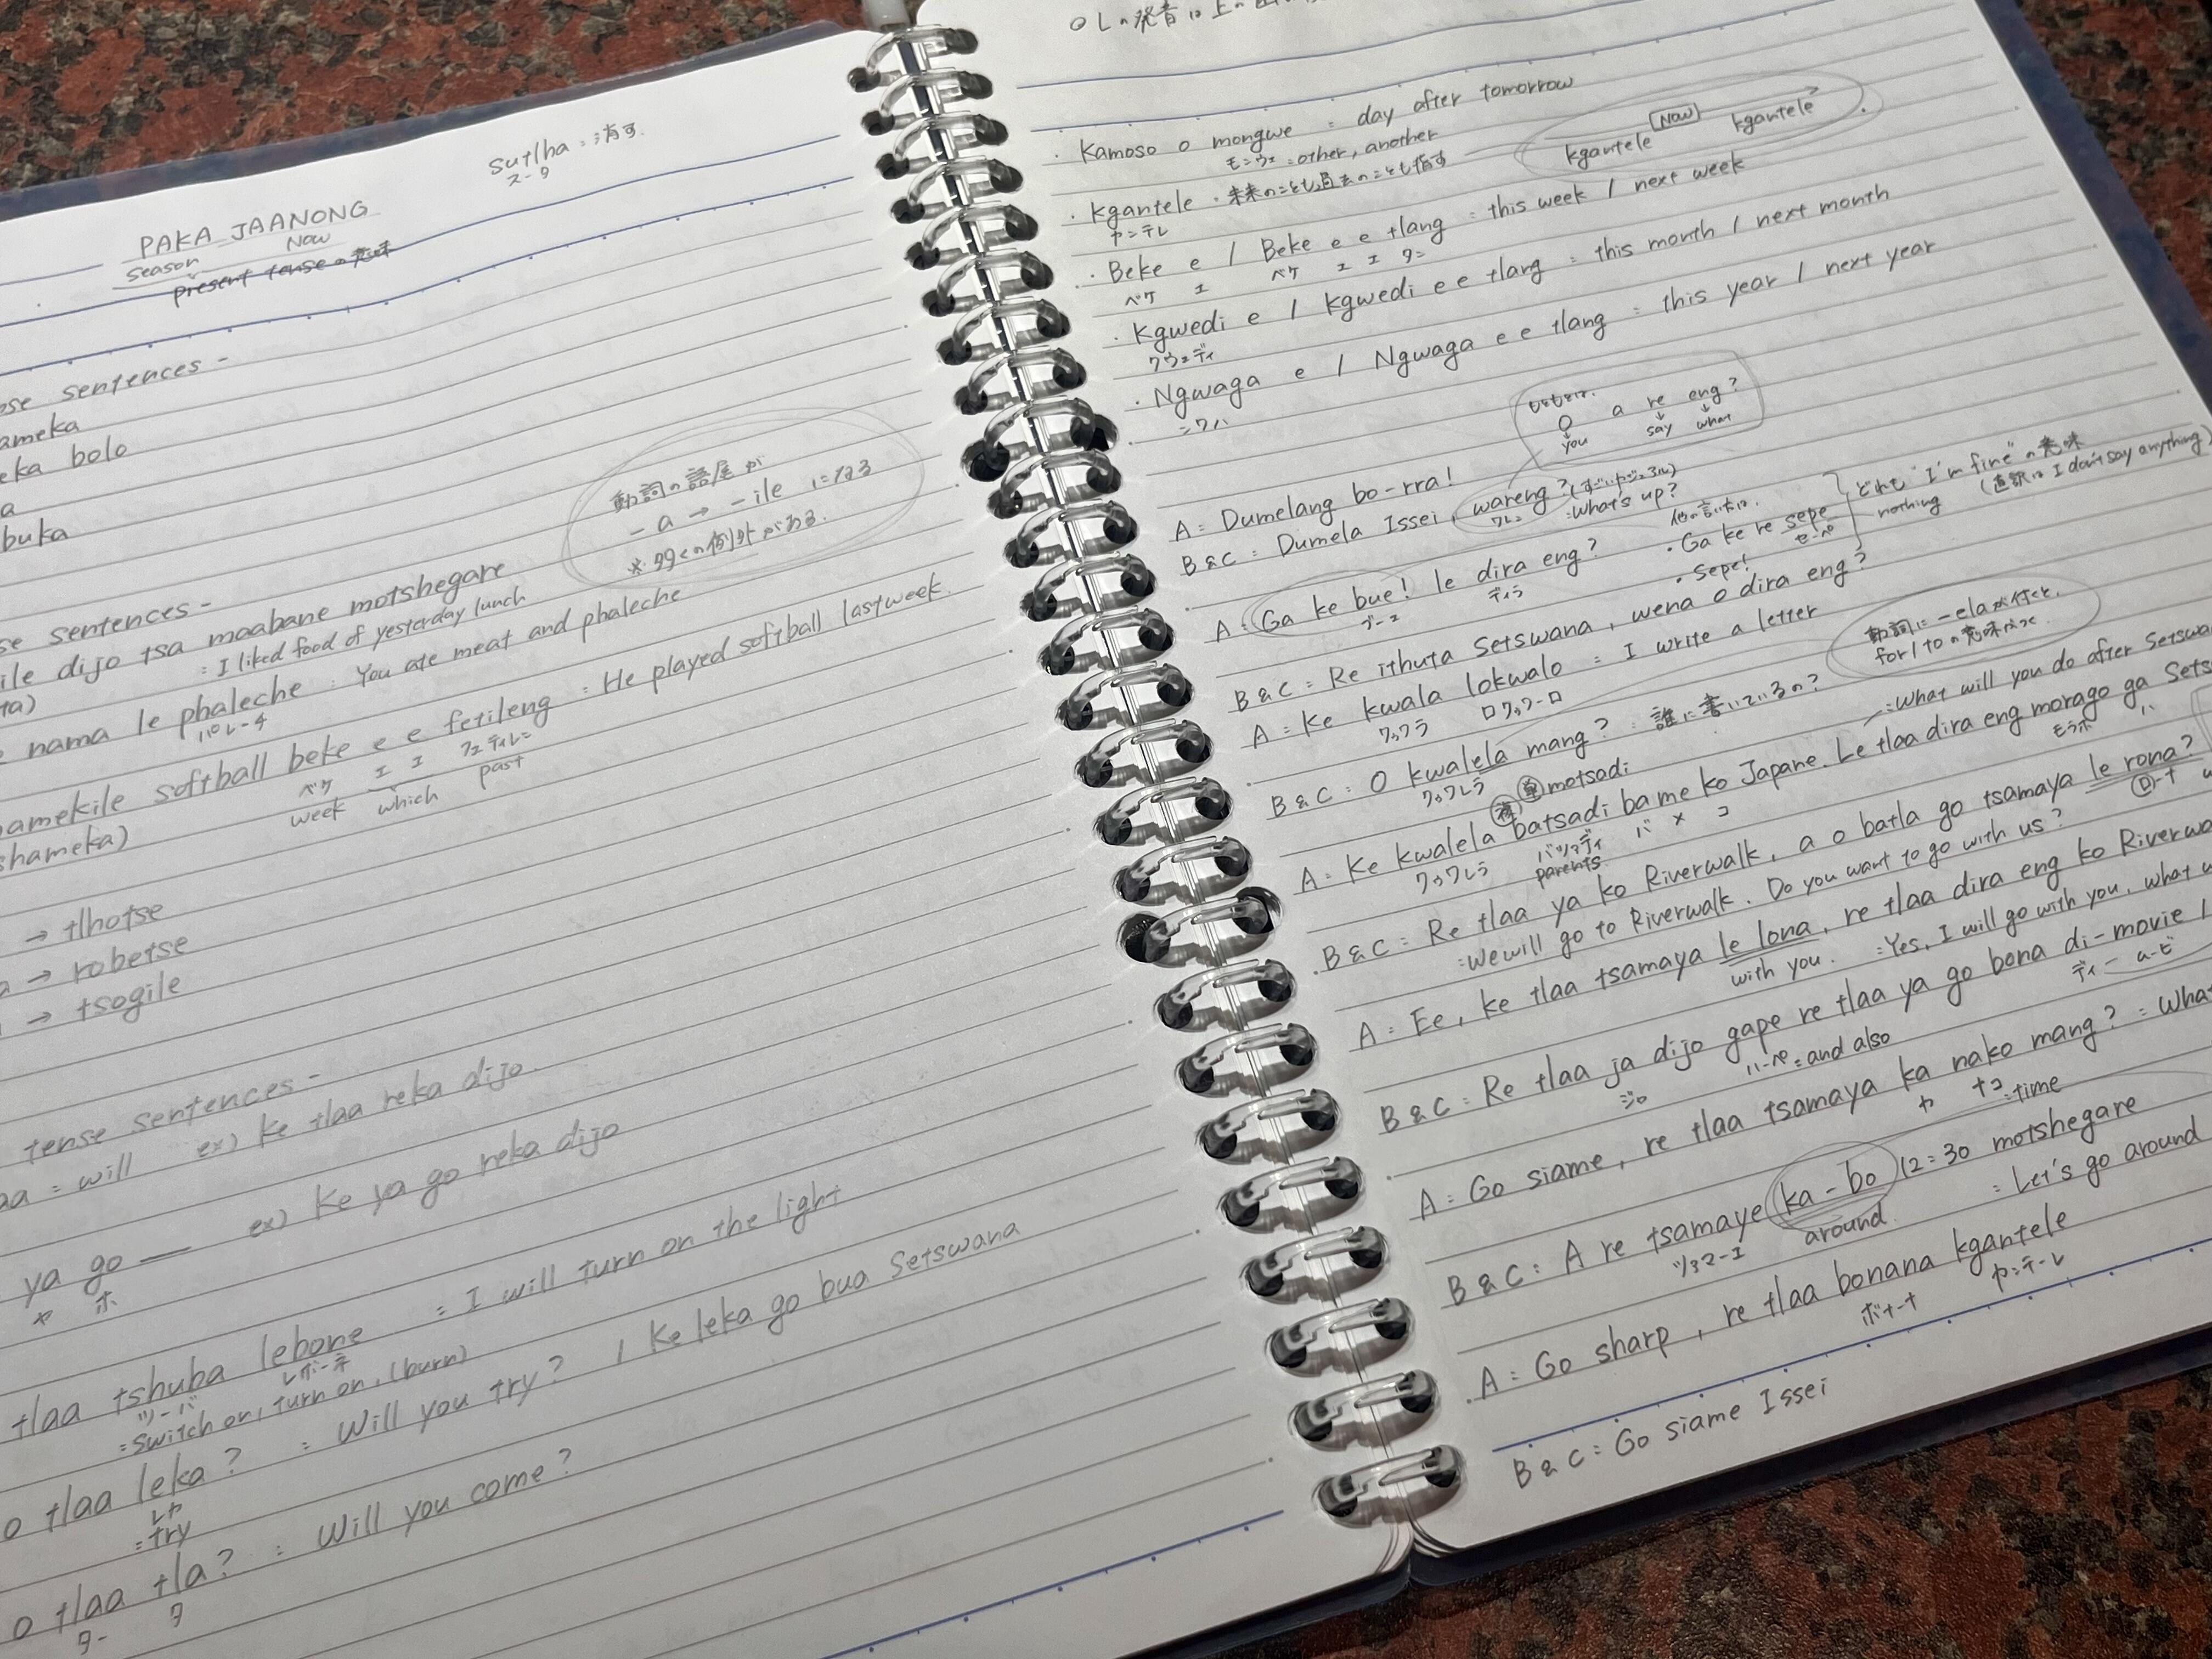 sutlha = 消す.
スータ
PAKA JAANONG
season Now
present tense の意味
sentences -
ameka
eka bolo
a
buka
動詞の語尾が
-a → -ile になる
*多くの例外がある.
sentences -
ile dijo tsa maabane motshegare
= I liked food of yesterday lunch
nama le phaleche : You ate meat and phaleche
パレーチ
amekile softball beke e e fetileng : He played softball last week.
ベケ エ エ フェティレン
week which past
shameka)
→ tlhotse
a → robetse
→ tsogile
tense sentences -
aa = will ex) ke tlaa reka dijo
ya go — ex) ke ya go reka dijo
ヤ ホ
tlaa tshuba lebone = I will turn on the light
ツーバ レボーネ
= switch on, turn on, (burn)
o tlaa leka? : Will you try? / Ke leka go bua Setswana
レカ
= try
o tlaa tla? : Will you come?
ター タ
○ Lの発音は上の
・Kamoso o mongwe : day after tomorrow
モンウェ = other, another
・kgantele・未来のことも過去のことも指す
カンテレ
kgantele Now kgantele
・Beke e / Beke e e tlang = this week / next week
ベケ エ ベケ エ エ タン
・Kgwedi e / kgwedi e e tlang = this month / next month
クウェディ
・Ngwaga e / Ngwaga e e tlang = this year / next year
ンワハ
もともとは.
O a re eng?
you say what
A : Dumelang bo-rra!
B & C : Dumela Issei, wareng? (すごいカジュアル)
ワレン : What's up?
A : Ga ke bue! le dira eng?
ブーエ ディラ
他の言い方は.
・Ga ke re sepe
セーペ nothing
・Sepe!
どれも "I'm fine" の意味
(直訳は I don't say anything)
B & C : Re ithuta Setswana, wena o dira eng?
A : Ke kwala lokwalo = I write a letter
クゥワラ ロクゥワーロ
動詞に -ela が付くと.
for / to の意味がつく
B & C : O kwalela mang? : 誰に書いているの?
クゥワレラ
複 単 motsadi
: What will you do after Setswa
A : Ke kwalela batsadi ba me ko Japane. Le tlaa dira eng morago ga Sets
クゥワレラ バツァディ バ メ コ モラホ ハ
parents
B & C : Re tlaa ya ko Riverwalk, a o batla go tsamaya le rona?
ロ-ナ
: We will go to Riverwalk. Do you want to go with us?
A : Ee, ke tlaa tsamaya le lona, re tlaa dira eng ko Riverwa
with you. : Yes, I will go with you, what w
B & C : Re tlaa ja dijo gape re tlaa ya go bona di-movie /
ジャ ハーペ = and also ディー
A : Go siame, re tlaa tsamaya ka nako mang? : What
カ ナコ = time
B & C : A re tsamaye ka-bo 12:30 motshegare
ツァマーエ around : Let's go around
A : Go sharp, re tlaa bonana kgantele
ボナーナ カンテーレ
B & C : Go siame Issei